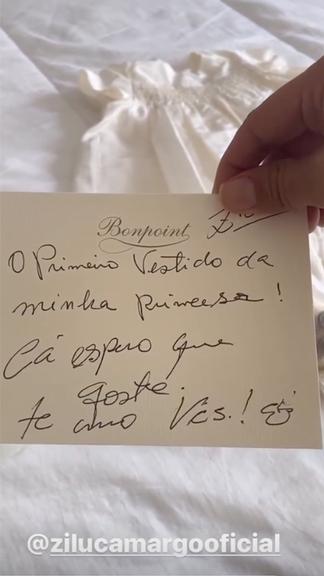 Bonpoint
O Primeiro Vestido da
minha princesa!
Cá espero que
goste.
te amo Vés.!
@zilucamargooficial